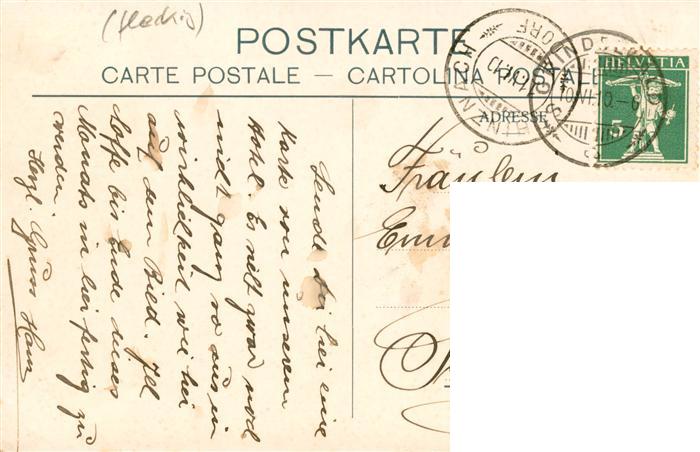 (fleckig)
POSTKARTE
CARTE POSTALE — CARTOLINA POSTALE
ADRESSE
HELVETIA
5
10.VI.10.-6
Fräulein
Sende dir hier eine
Karte von unserem
Hotel. Es sieht zwar noch
nicht ganz so aus in
wirklichkeit wie hier
auf dem Bild. Ich
hoffe bis Ende dieses
Monats in hier fertig zu
werden.
Herzl. Gruss Hans